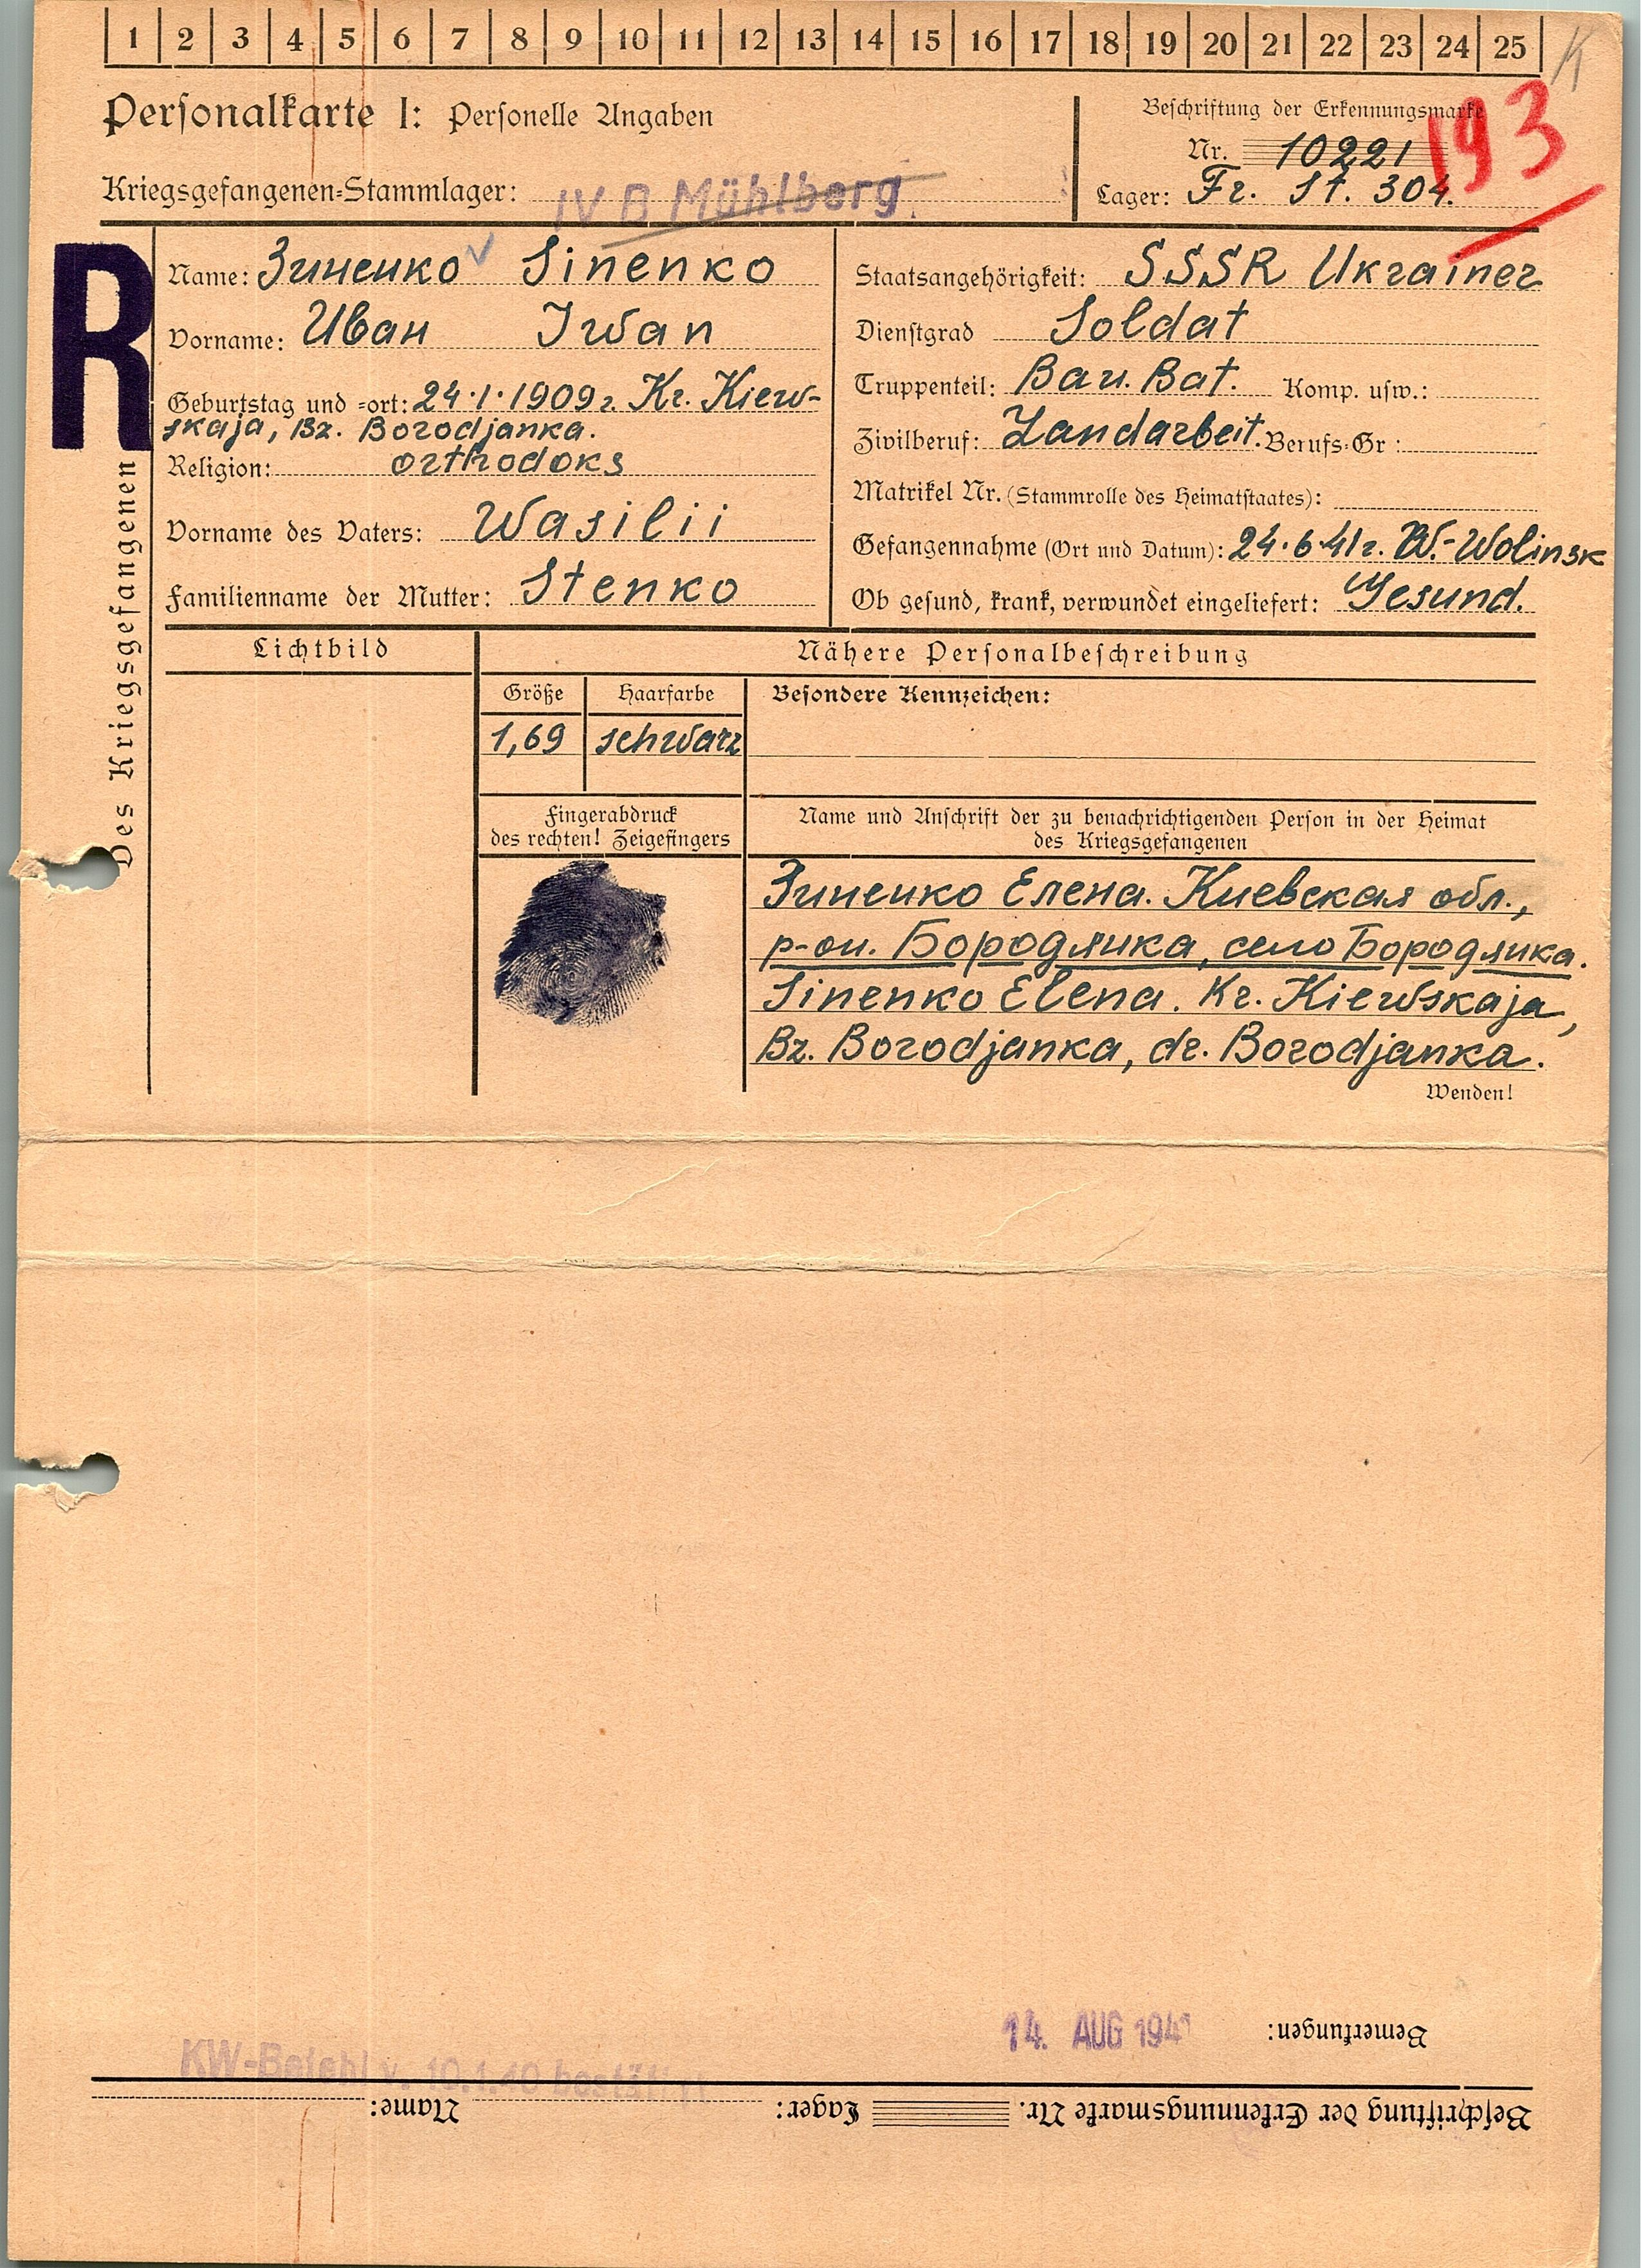 1 2 3 4 5 6 7 8 9 10 11 12 13 14 15 16 17 18 19 20 21 22 23 24 25
K
Personalkarte I: Personelle Angaben
Beschriftung der Erkennungsmarke
Nr. 10221
193
Kriegsgefangenen-Stammlager: IV B Mühlberg.
Lager: Fr. St. 304.
R
Des Kriegsgefangenen
Name: Зиненко Sinenko
Vorname: Иван Iwan
Geburtstag und -ort: 24.1.1909г. Kr. Kiew-
skaja, Bz. Borodjanka.
Religion: orthodoks
Vorname des Vaters: Wasilii
Familienname der Mutter: Stenko
Staatsangehörigkeit: SSSR Ukrainer
Dienstgrad Soldat
Truppenteil: Bau. Bat. Komp. usw.:
Zivilberuf: Landarbeit. Berufs-Gr.:
Matrikel Nr. (Stammrolle des Heimatstaates):
Gefangennahme (Ort und Datum): 24.6.41г. W.-Wolinsk
Ob gesund, krank, verwundet eingeliefert: Gesund.
Lichtbild
Nähere Personalbeschreibung
Größe
Haarfarbe
Besondere Kennzeichen:
1,69
schwarz
Fingerabdruck
des rechten! Zeigefingers
Name und Anschrift der zu benachrichtigenden Person in der Heimat
des Kriegsgefangenen
Зиненко Елена. Киевская обл.,
р-он. Бородянка, село Бородянка.
Sinenko Elena. Kr. Kiewskaja,
Bz. Borodjanka, dr. Borodjanka.
Wenden!
14. AUG 194
Bemerkungen:
KW-Befehl v. 10.1.40 bestätigt
Beschriftung der Erkennungsmarke Nr. Lager: Name: